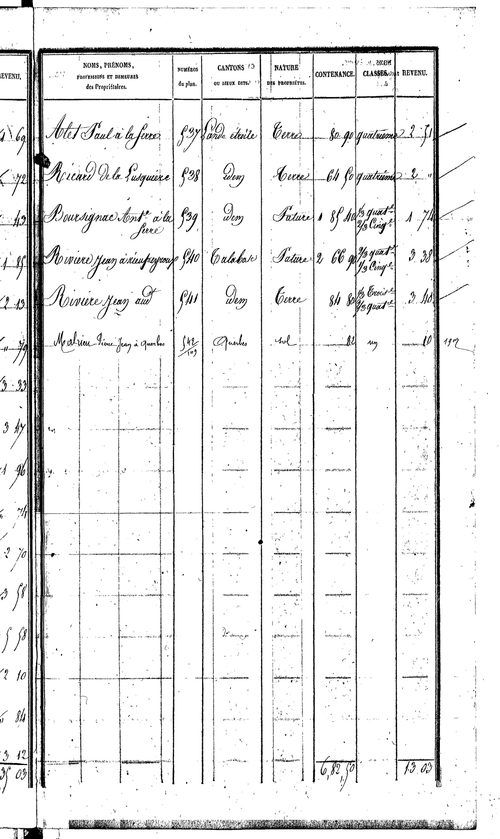 NOMS, PRÉNOMS, PROFESSIONS ET DEMEURES des Propriétaires. NUMÉROS du plan. CANTONS OU LIEUX DITS. NATURE DES PROPRIÉTÉS. CONTENANCE. CLASSES. REVENU.
Alet Paul à la Serre 537 Lande étoile Terre 80 90 quatrième 2 51
Ricard de la Lusquiere 538 idem Terre 64 50 quatrième 2 "
Boursignac Ant.e à la Serre 539 idem Pature 1 85 40 1/3 quat.e 2/3 cinq.e 1 74
Riviere Jean à 540 Calabase Pature 2 66 90 1/3 quat.e 2/3 cinq.e 3 38
Riviere Jean aud.t 541 idem Terre 84 80 1/3 trois.e 2/3 quat.e 3 40
Malrieu Pierre Jean à Querbes 542 Querbes sol 82 un 10 1912
6,82,50 13 03
REVENU.
69
72
43
1 85
2 13
79
3 33
3 47
1 96
74
2 70
3 58
5 58
2 10
84
3 12
35 03